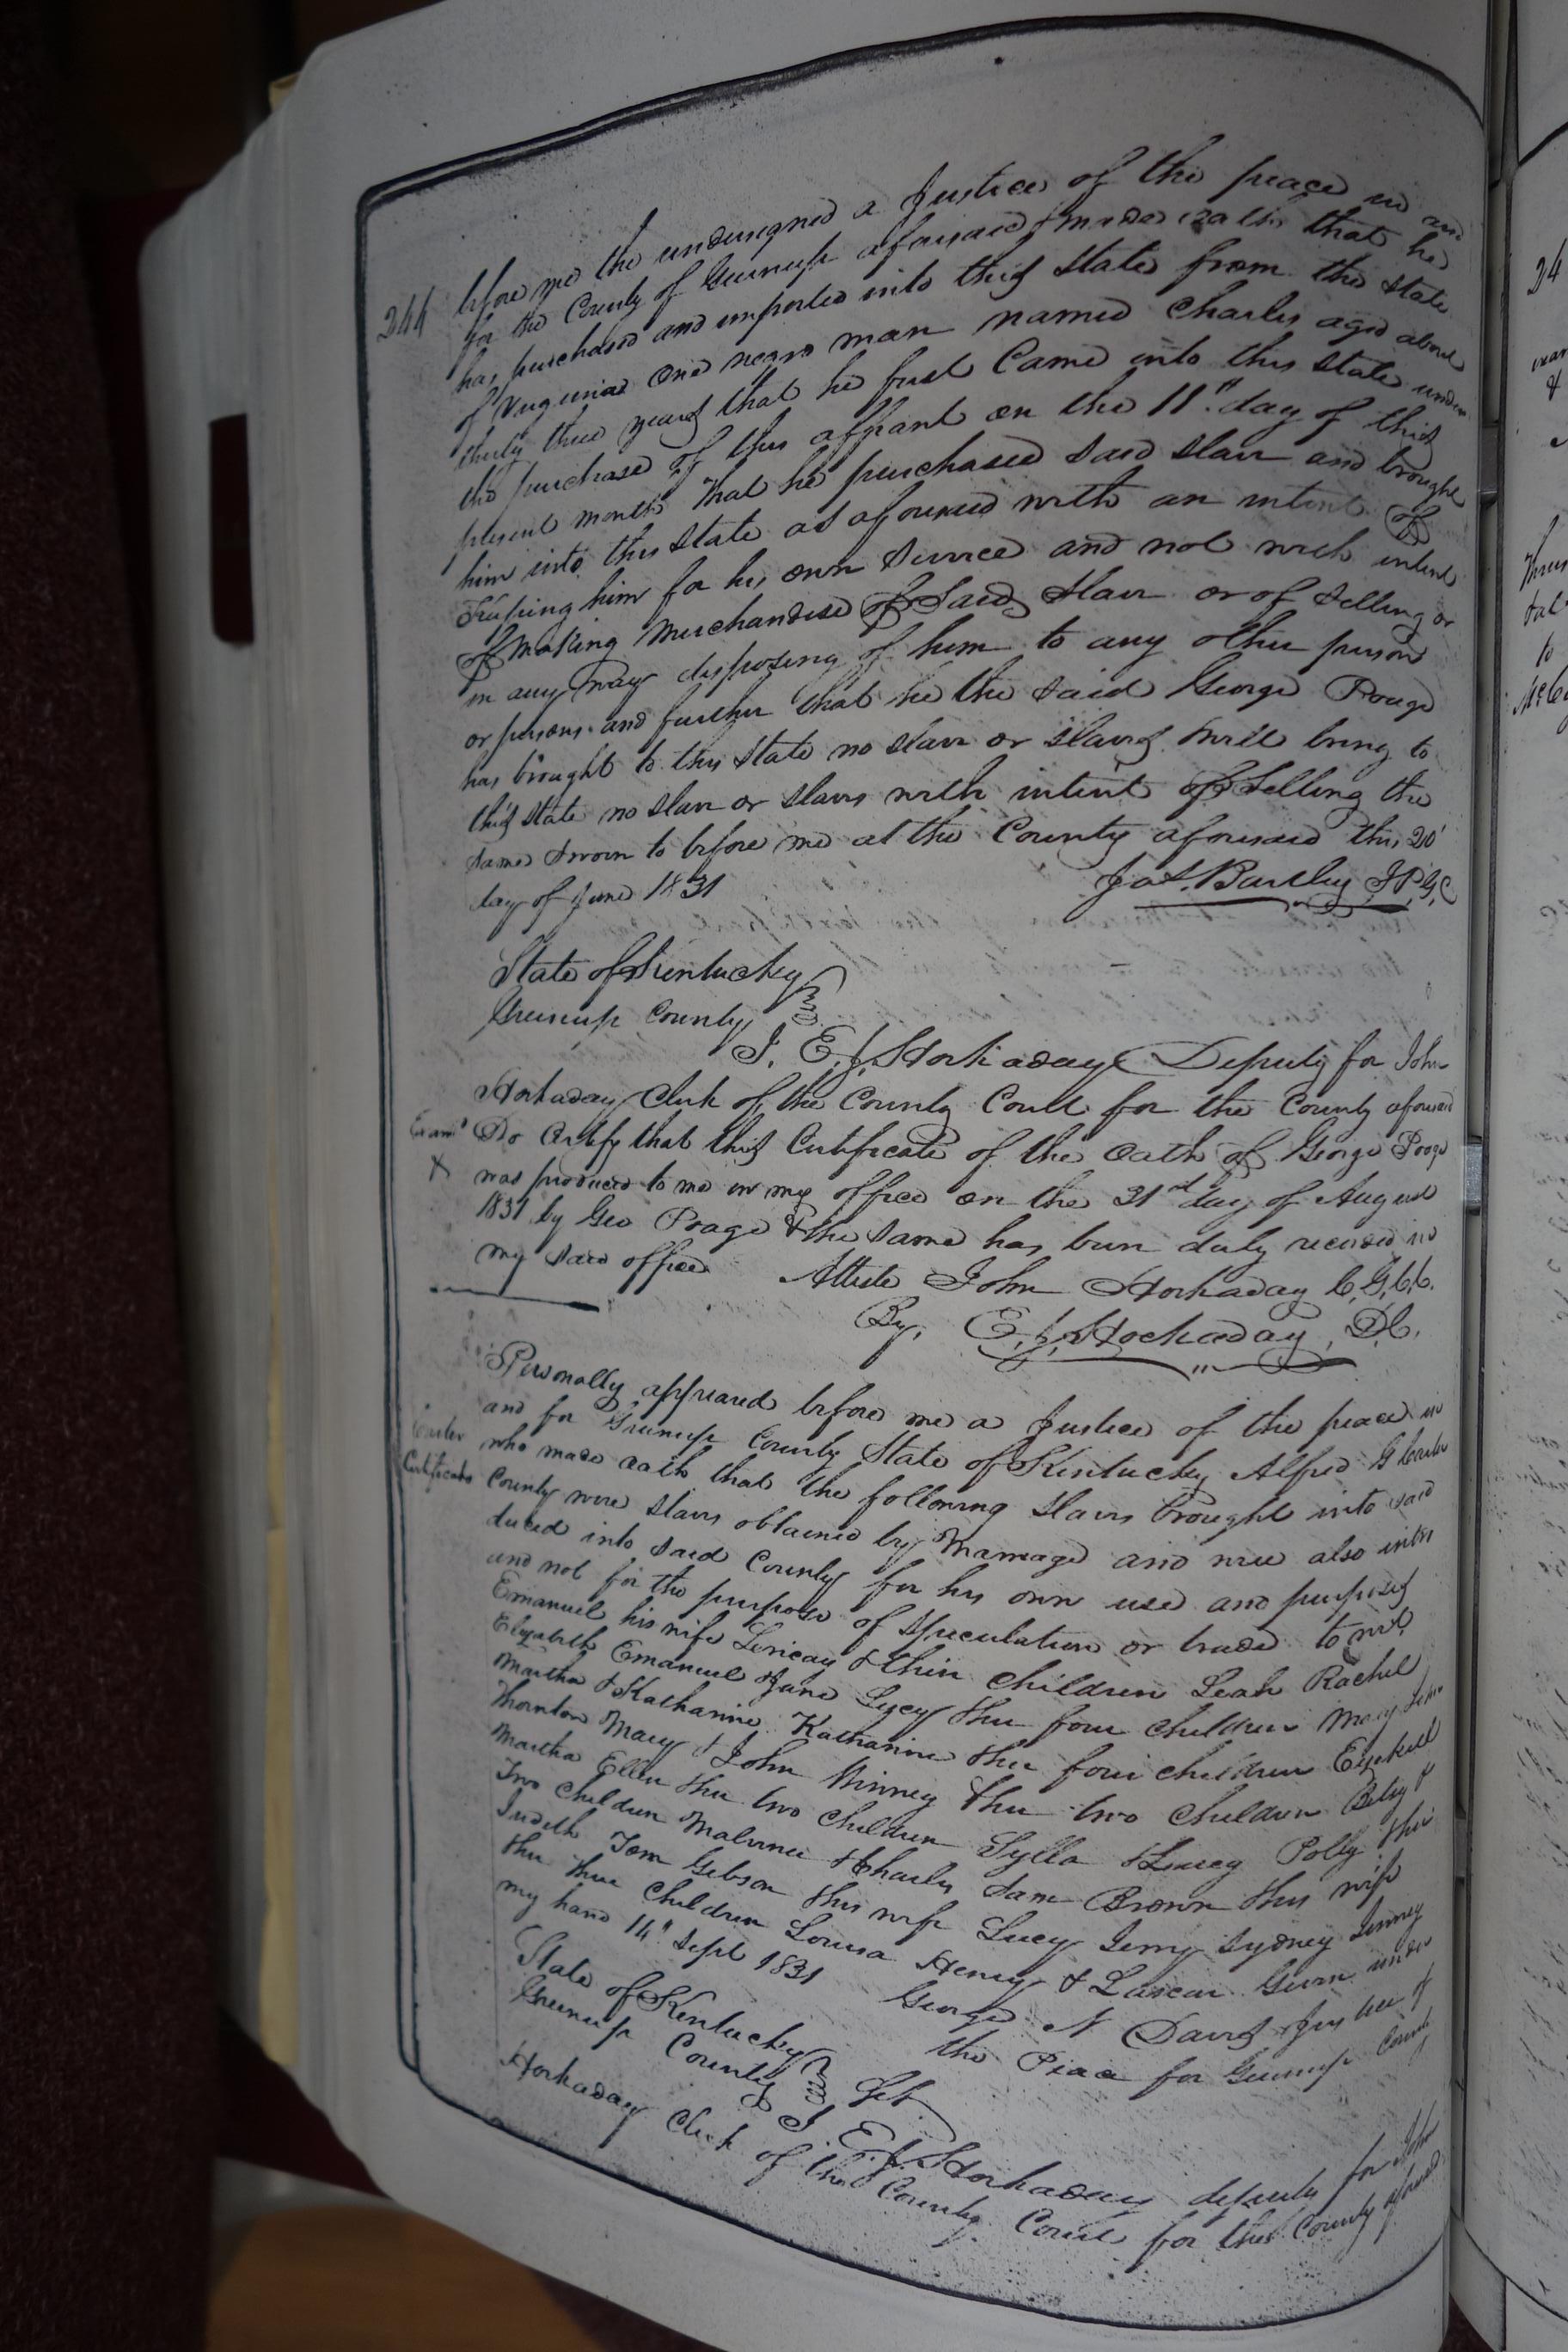 244
before me the undersigned a Justice of the peace in and
for the County of Greenup aforesaid & made oath that he
has purchased and imported into this State from the State
of Virginia one negro man named Charles aged about
thirty three years that he first Came into this State under
the purchase of this affiant on the 11" day of this
present month that he purchased said slave and brought
him into this State as aforesaid with an intent of
Keeping him for his own service and not with intent
of making Merchandise of said slave or of selling or
in any way disposing of him to any other person
or persons and further that he the said George Poage
has brought to this State no slave or slaves will bring to
this State no slave or slaves with intent of selling the
same sworn to before me at the County aforesaid this 20'
day of June 1831
Jas. Bartley J.P.G.C
State of Kentucky
Greenup County
I, E. J. Hockaday Deputy for John
Hockaday Clerk of the County Court for the County aforesaid
Do Certify that this Certificate of the Oath of George Poage
Exam'd
X
was produced to me in my office on the 31st day of August
1831 by Geo Poage & the same has been duly recorded in
my said office
Atteste John Hockaday C.G.C.C.
By, E. J. Hockaday, D.C.
Personally appeared before me a Justice of the peace in
and for Greenup County State of Kentucky Alfred G Carter
Carter
Certificate
who made oath that the following slaves brought into said
County were slaves obtained by Marriage and were also intro
duced into said County for his own use and purposes
and not for the purpose of Speculation or trade to wit
Emanuel his wife & their Children Leah Rachel
Elizabeth Emanuel & Jane Lucy & her four children Mary
Martha & Katharine Katharine & her four children Ezekiel
Thornton Mary & John Winney & her two Children Betsy &
Martha Ellen & her two Children Sylla & Lucey Polly & her
Two Children Malvina & Charles Sam Brown & his wife
Judith Tom Gibson & his wife Lucy Jerry Sydney Jenney
& her three Children Louisa Henry & Given under
my hand 14" Sept 1831
George N Davis Justice of
the Peace for Greenup County
State of Kentucky
Greenup County Sct
I E. J. Hockaday deputy for John
Hockaday Clerk of the County Court for the County aforesaid
24